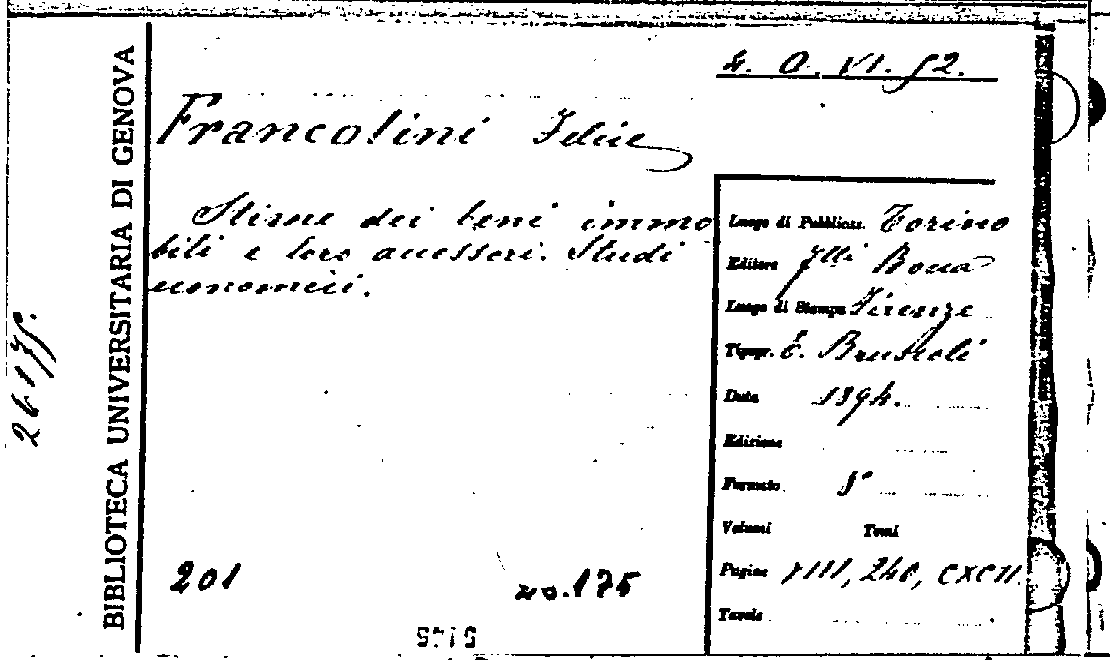 4. O. VI. 52.
BIBLIOTECA UNIVERSITARIA DI GENOVA
Francolini Felice
Stime dei beni immo
bili e loro accessori. Studi
economici.
Luogo di Pubblicaz. Torino
Editore Flli Bocca
Luogo di Stampa Firenze
Tipogr. E. Bruscoli
Data 1894.
Edizione
Formato 8°
Volumi Tomi
Pagine VIII, 240, CXCII.
Tavole
201
20.175